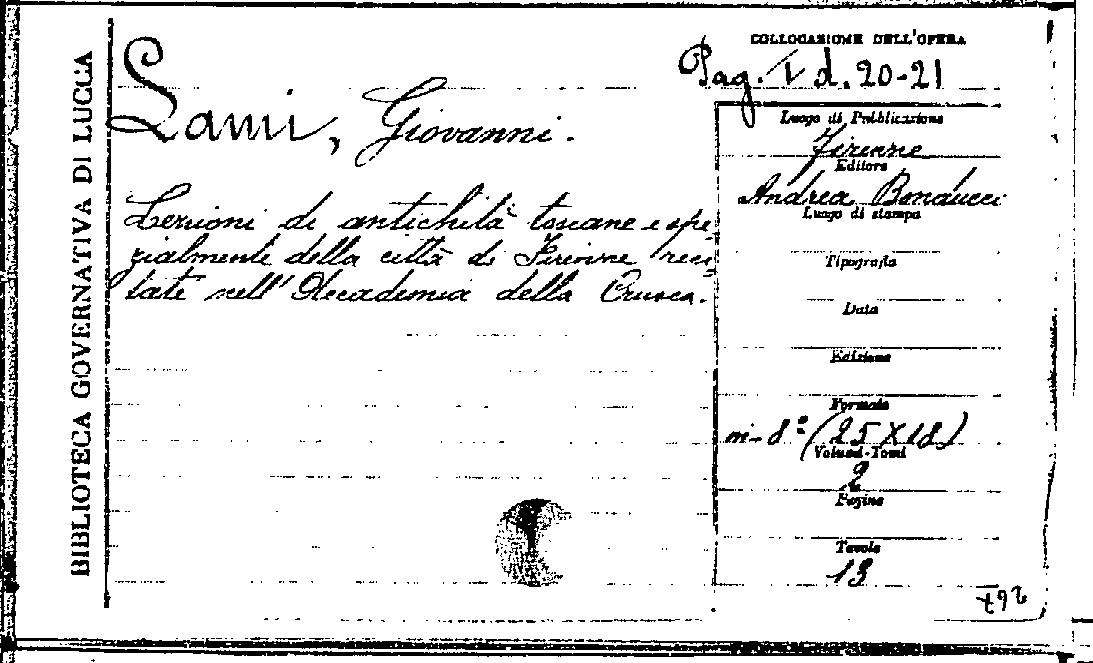 BIBLIOTECA GOVERNATIVA DI LUCCA
COLLOCAZIONE DELL'OPERA
Pag. I d. 20-21
Lami, Giovanni.
Lezioni di antichità toscane e spe-
zialmente della città di Firenze reci-
tate nell'Accademia della Crusca.
Luogo di Pubblicazione
Firenze
Editore
Andrea Bonducci
Luogo di stampa
Tipografia
Data
Edizione
Formato
in-8º (25X18)
Volumi-Tomi
2
Pagine
Tavole
13
267